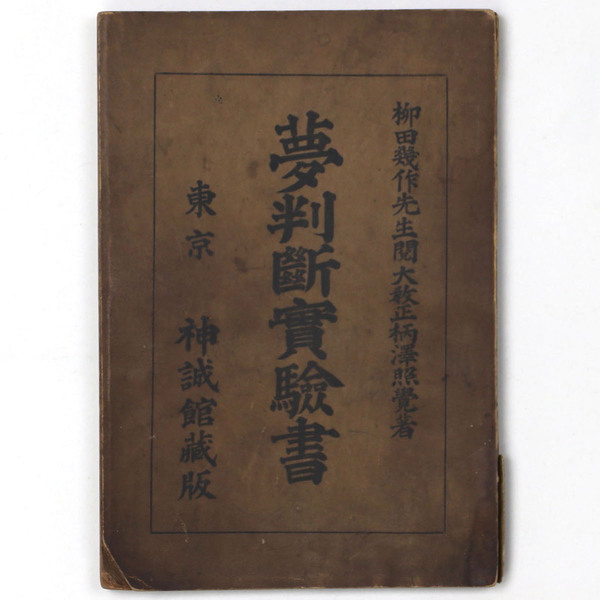 柳田幾作先生閲大教正柄澤照覺著
夢判斷實驗書
東京
神誠館藏版